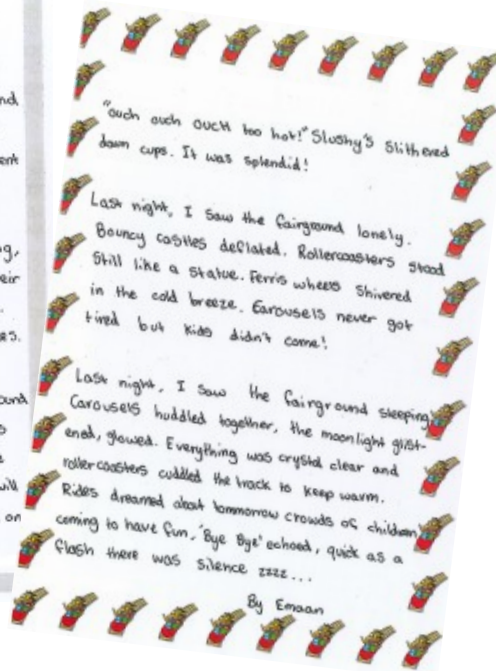 nd
ent
ng,
eir
es.
ound
s
will
on
"ouch ouch oucH too hot!" Slushy's Slithered
down cups. It was splendid!
Last night, I saw the fairground lonely.
Bouncy castles deflated. Rollercoasters stood
Still like a statue. Ferris wheels Shivered
in the cold breeze. Carousels never got
tired but kids didn't come!
Last night, I saw the fairground sleeping
Carousels huddled together, the moonlight glist-
ened, glowed. Everything was crystal clear and
rollercoasters cuddled the track to keep warm.
Rides dreamed about tommorrow crowds of children
coming to have fun, 'Bye Bye' echoed, quick as a
flash there was silence zzzz...
By Emaan